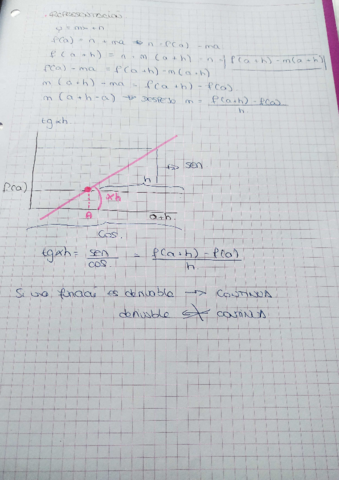 y = mx + n
f(a) = n + ma → n = f(a) - ma
f(a+h) = n + m(a+h) → n = f(a+h) - m(a+h)
f(a) - ma = f(a+h) - m(a+h)
m(a+h) - ma = f(a+h) - f(a)
m(a+h-a) → DESPEJO m = f(a+h) - f(a) / h
tgαh
sen
h
f(a)
αh
a
a+h
cos.
tgαh = sen / cos = f(a+h) - f(a) / h
Si una función es derivable → CONTINUA
derivable ← CONTINUA